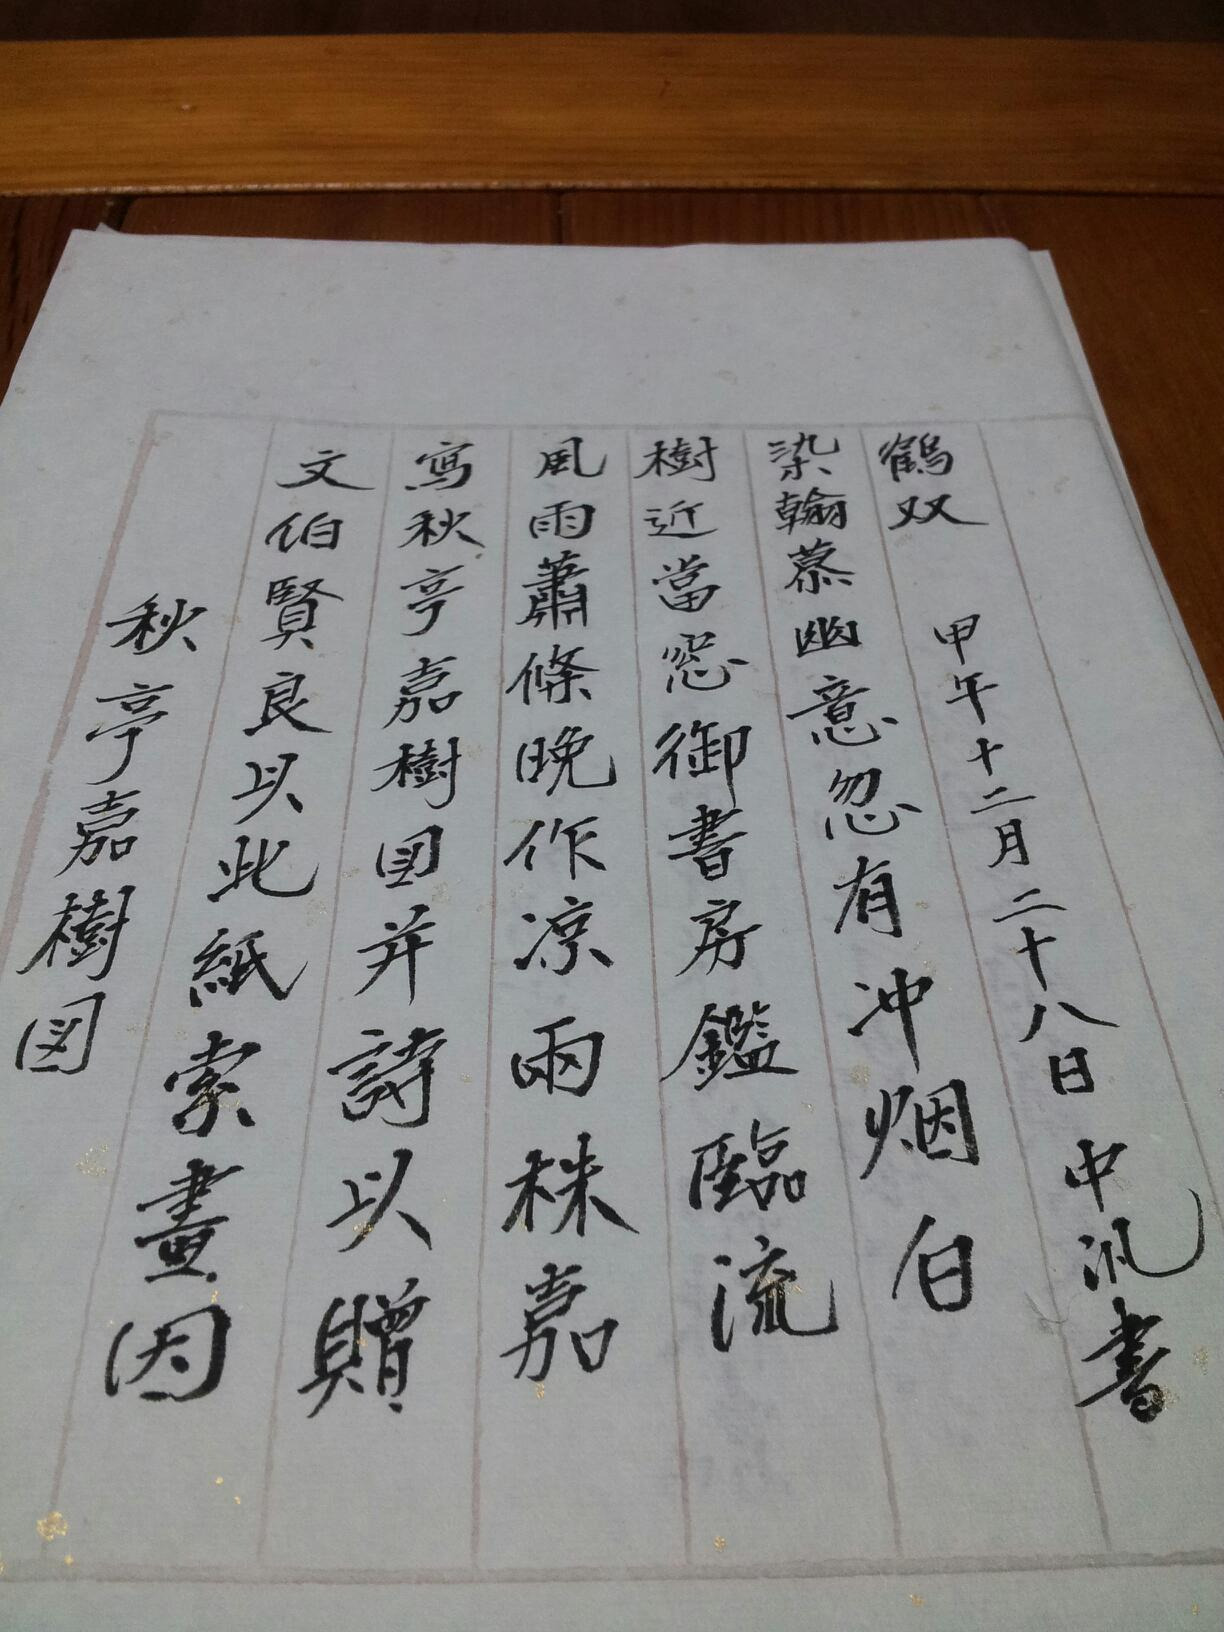 秋亭嘉樹図
文伯賢良以此紙索畫因
寫秋亭嘉樹図并詩以贈
風雨蕭條晚作凉兩株嘉
樹近當窓御書房鑑臨流
染翰慕幽意忽有冲烟白
鶴双
甲午十二月二十八日 中汎書